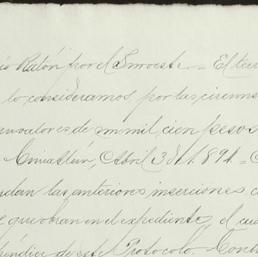 Ratón por el Suroeste = El ter
lo consideramos por las circuns
valores de mil cien pesos
Abril 3 de 1891 = 
las anteriores, inserciones
que obran en el expediente, el cu
de este Protocolo. Con